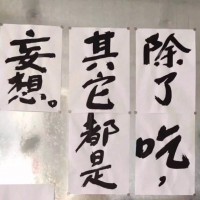 除了
吃，
其它
都是
妄想。